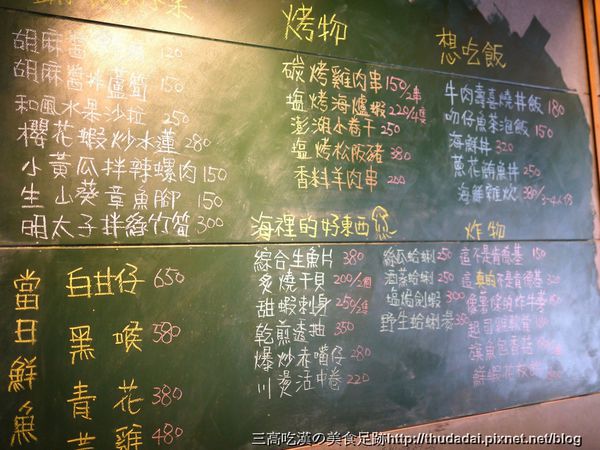 胡麻醬 120
胡麻醬拌蘆筍 150
和風水果沙拉 250
櫻花蝦炒水蓮 280
小黃瓜拌辣螺肉 150
生山葵章魚腳 150
明太子拌綠竹筍 300
烤物
碳烤雞肉串 150/2串
塩烤海爐蝦 220/4隻
澎湖小卷干 250
塩烤松阪豬 380
香料羊肉串 200
想吃飯
牛肉壽喜燒丼飯 180
吻仔魚茶泡飯 150
海鮮丼 320
蔥花鮪魚丼 250
海鮮雜炊 380/3-4人份
當日鮮魚
白甘仔 650
黑喉 580
青花 380
雞 480
海裡的好東西
綜合生魚片 380
炙燒干貝 200/2個
甜蝦刺身 250/5隻
乾煎透抽 350
爆炒赤嘴仔 280
川燙活中卷 220
絲瓜蛤蜊 250
酒蒸蛤蜊 250
塩焗劍蝦 300
野生蛤蜊
炸物
這不是肯德基 150
這真的不是肯德基
三高吃漢の美食足跡http://thudadai.pixnet.net/blog